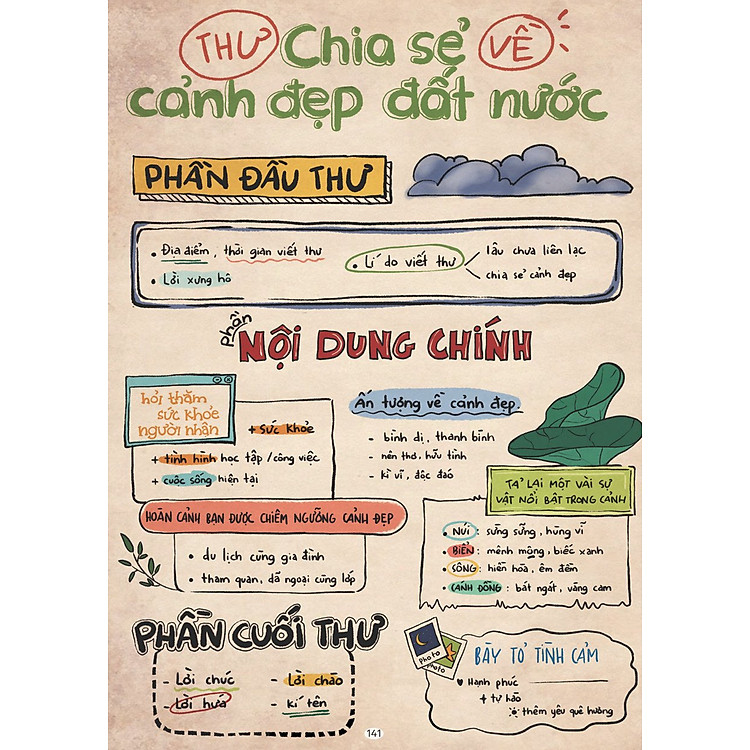 THƯ Chia sẻ VỀ
cảnh đẹp đất nước
PHẦN ĐẦU THƯ
• Địa điểm, thời gian viết thư
• Lời xưng hô
• Lí do viết thư
lâu chưa liên lạc
chia sẻ cảnh đẹp
phần
NỘI DUNG CHÍNH
hỏi thăm
sức khỏe
người nhận
+ Sức khỏe
+ tình hình học tập / công việc
+ cuộc sống hiện tại
Ấn tượng về cảnh đẹp
- bình dị, thanh bình
- nên thơ, hữu tình
- kì vĩ, độc đáo
HOÀN CẢNH BẠN ĐƯỢC CHIÊM NGƯỠNG CẢNH ĐẸP
• du lịch cùng gia đình
• tham quan, dã ngoại cùng lớp
TẢ LẠI MỘT VÀI SỰ
VẬT NỔI BẬT TRONG CẢNH
• NÚI: sừng sững, hùng vĩ
• BIỂN: mênh mông, biếc xanh
• SÔNG: hiền hòa, êm đềm
• CÁNH ĐỒNG: bát ngát, vàng cam
PHẦN CUỐI THƯ
- Lời chúc
- Lời chào
- Lời hứa
- kí tên
photo
photo
BÀY TỎ TÌNH CẢM
♥ Hạnh phúc
+ tự hào
thêm yêu quê hương
141